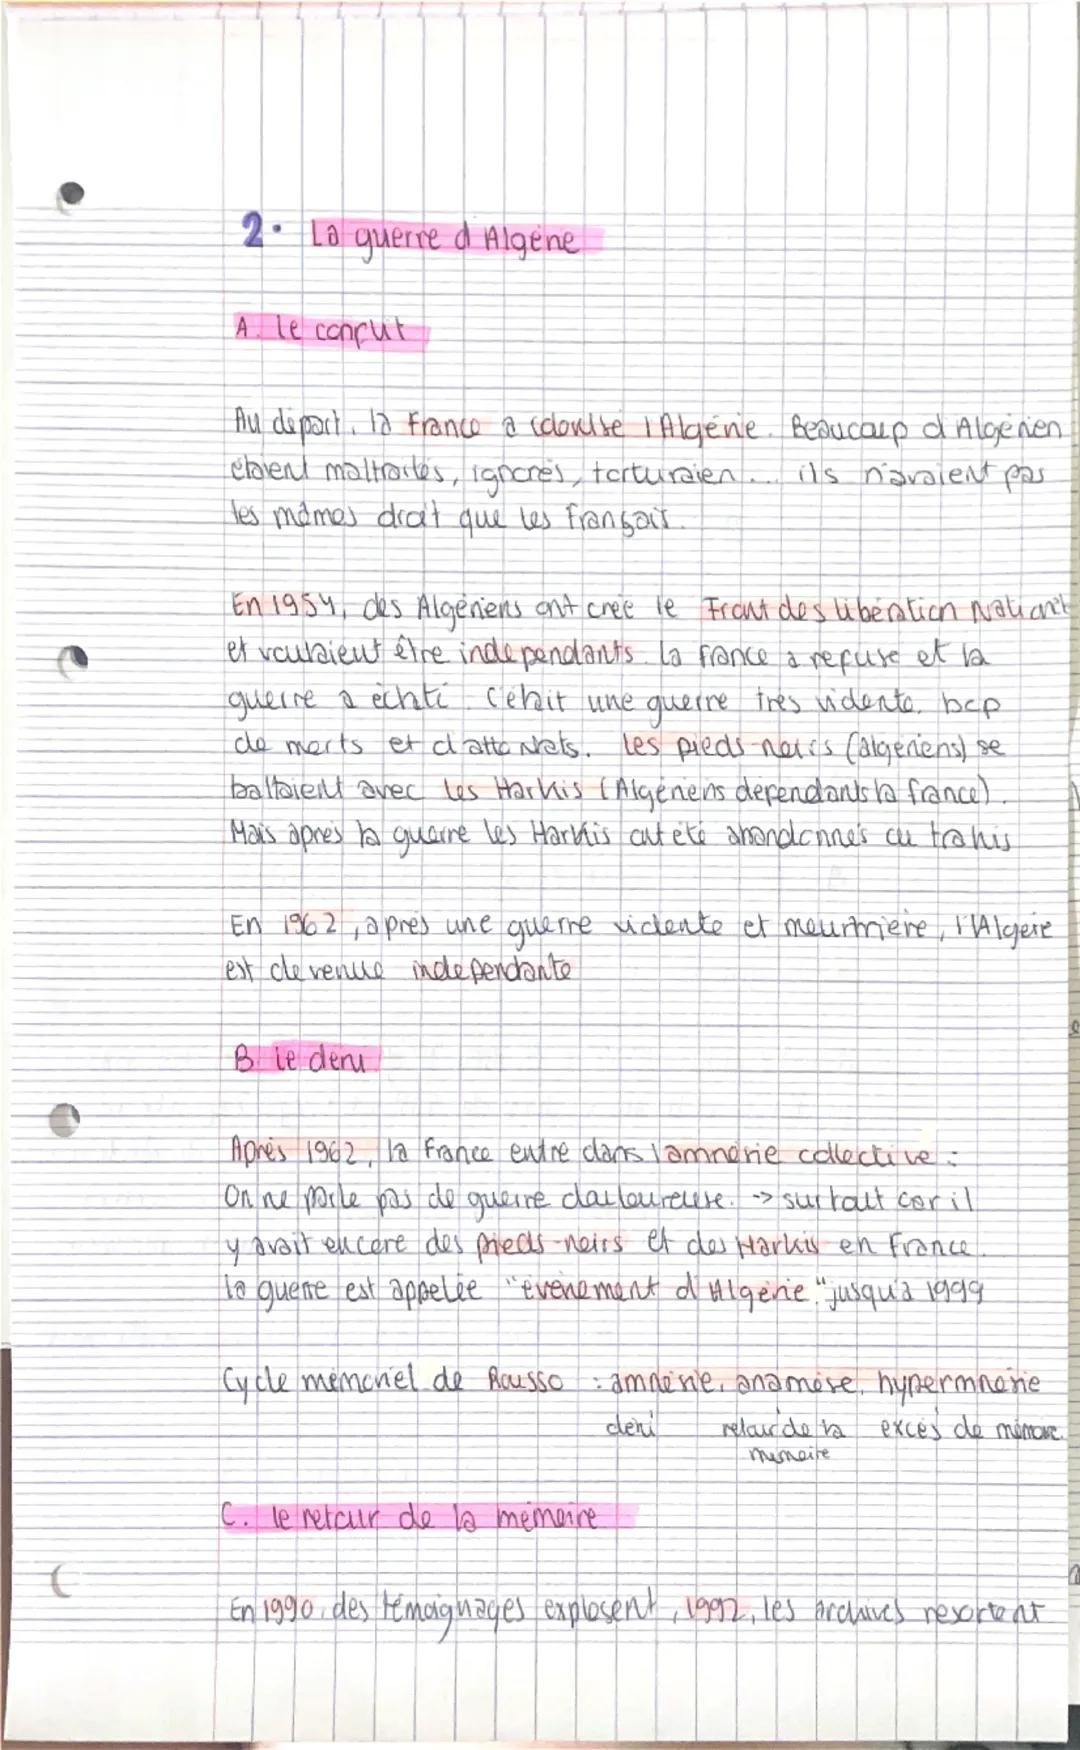 2. La guerre d'Algérie
A. le conflit
Au départ, la France a colonisé l'Algérie. Beaucoup d'Algérien
étaient maltraités, ignorés, torturaien... ils n'avaient pas
les mêmes droit que les français.
En 1954, des Algériens ont créé le Front des libération National
et voulaient être indépendants. la france a refusé et la
guerre a éclaté. C'était une guerre très violente, bcp
de morts et d'attentats. les pieds-noirs (algériens) se
battaient avec les Harkis (Algériens dependants la france).
Mais après la guerre les Harkis ont été abandonnés ou trahis
En 1962, après une guerre violente et meurtrière, l'Algérie
est devenue indépendante
B. le deni
Après 1962, la France entre dans l'amnésie collective :
On ne parle pas de guerre douloureuse. -> surtout car il
y avait encore des pieds-noirs et des Harkis en France.
la guerre est appelée "évènement d'Algérie" jusqu'à 1999
Cycle mémoriel de Rousso : amnésie, anamèse, hypermnésie
deni retour de la excès de mémoire
mémoire
C. le retour de la mémoire
En 1990, des témoignages explosent, 1992, les archives resortent